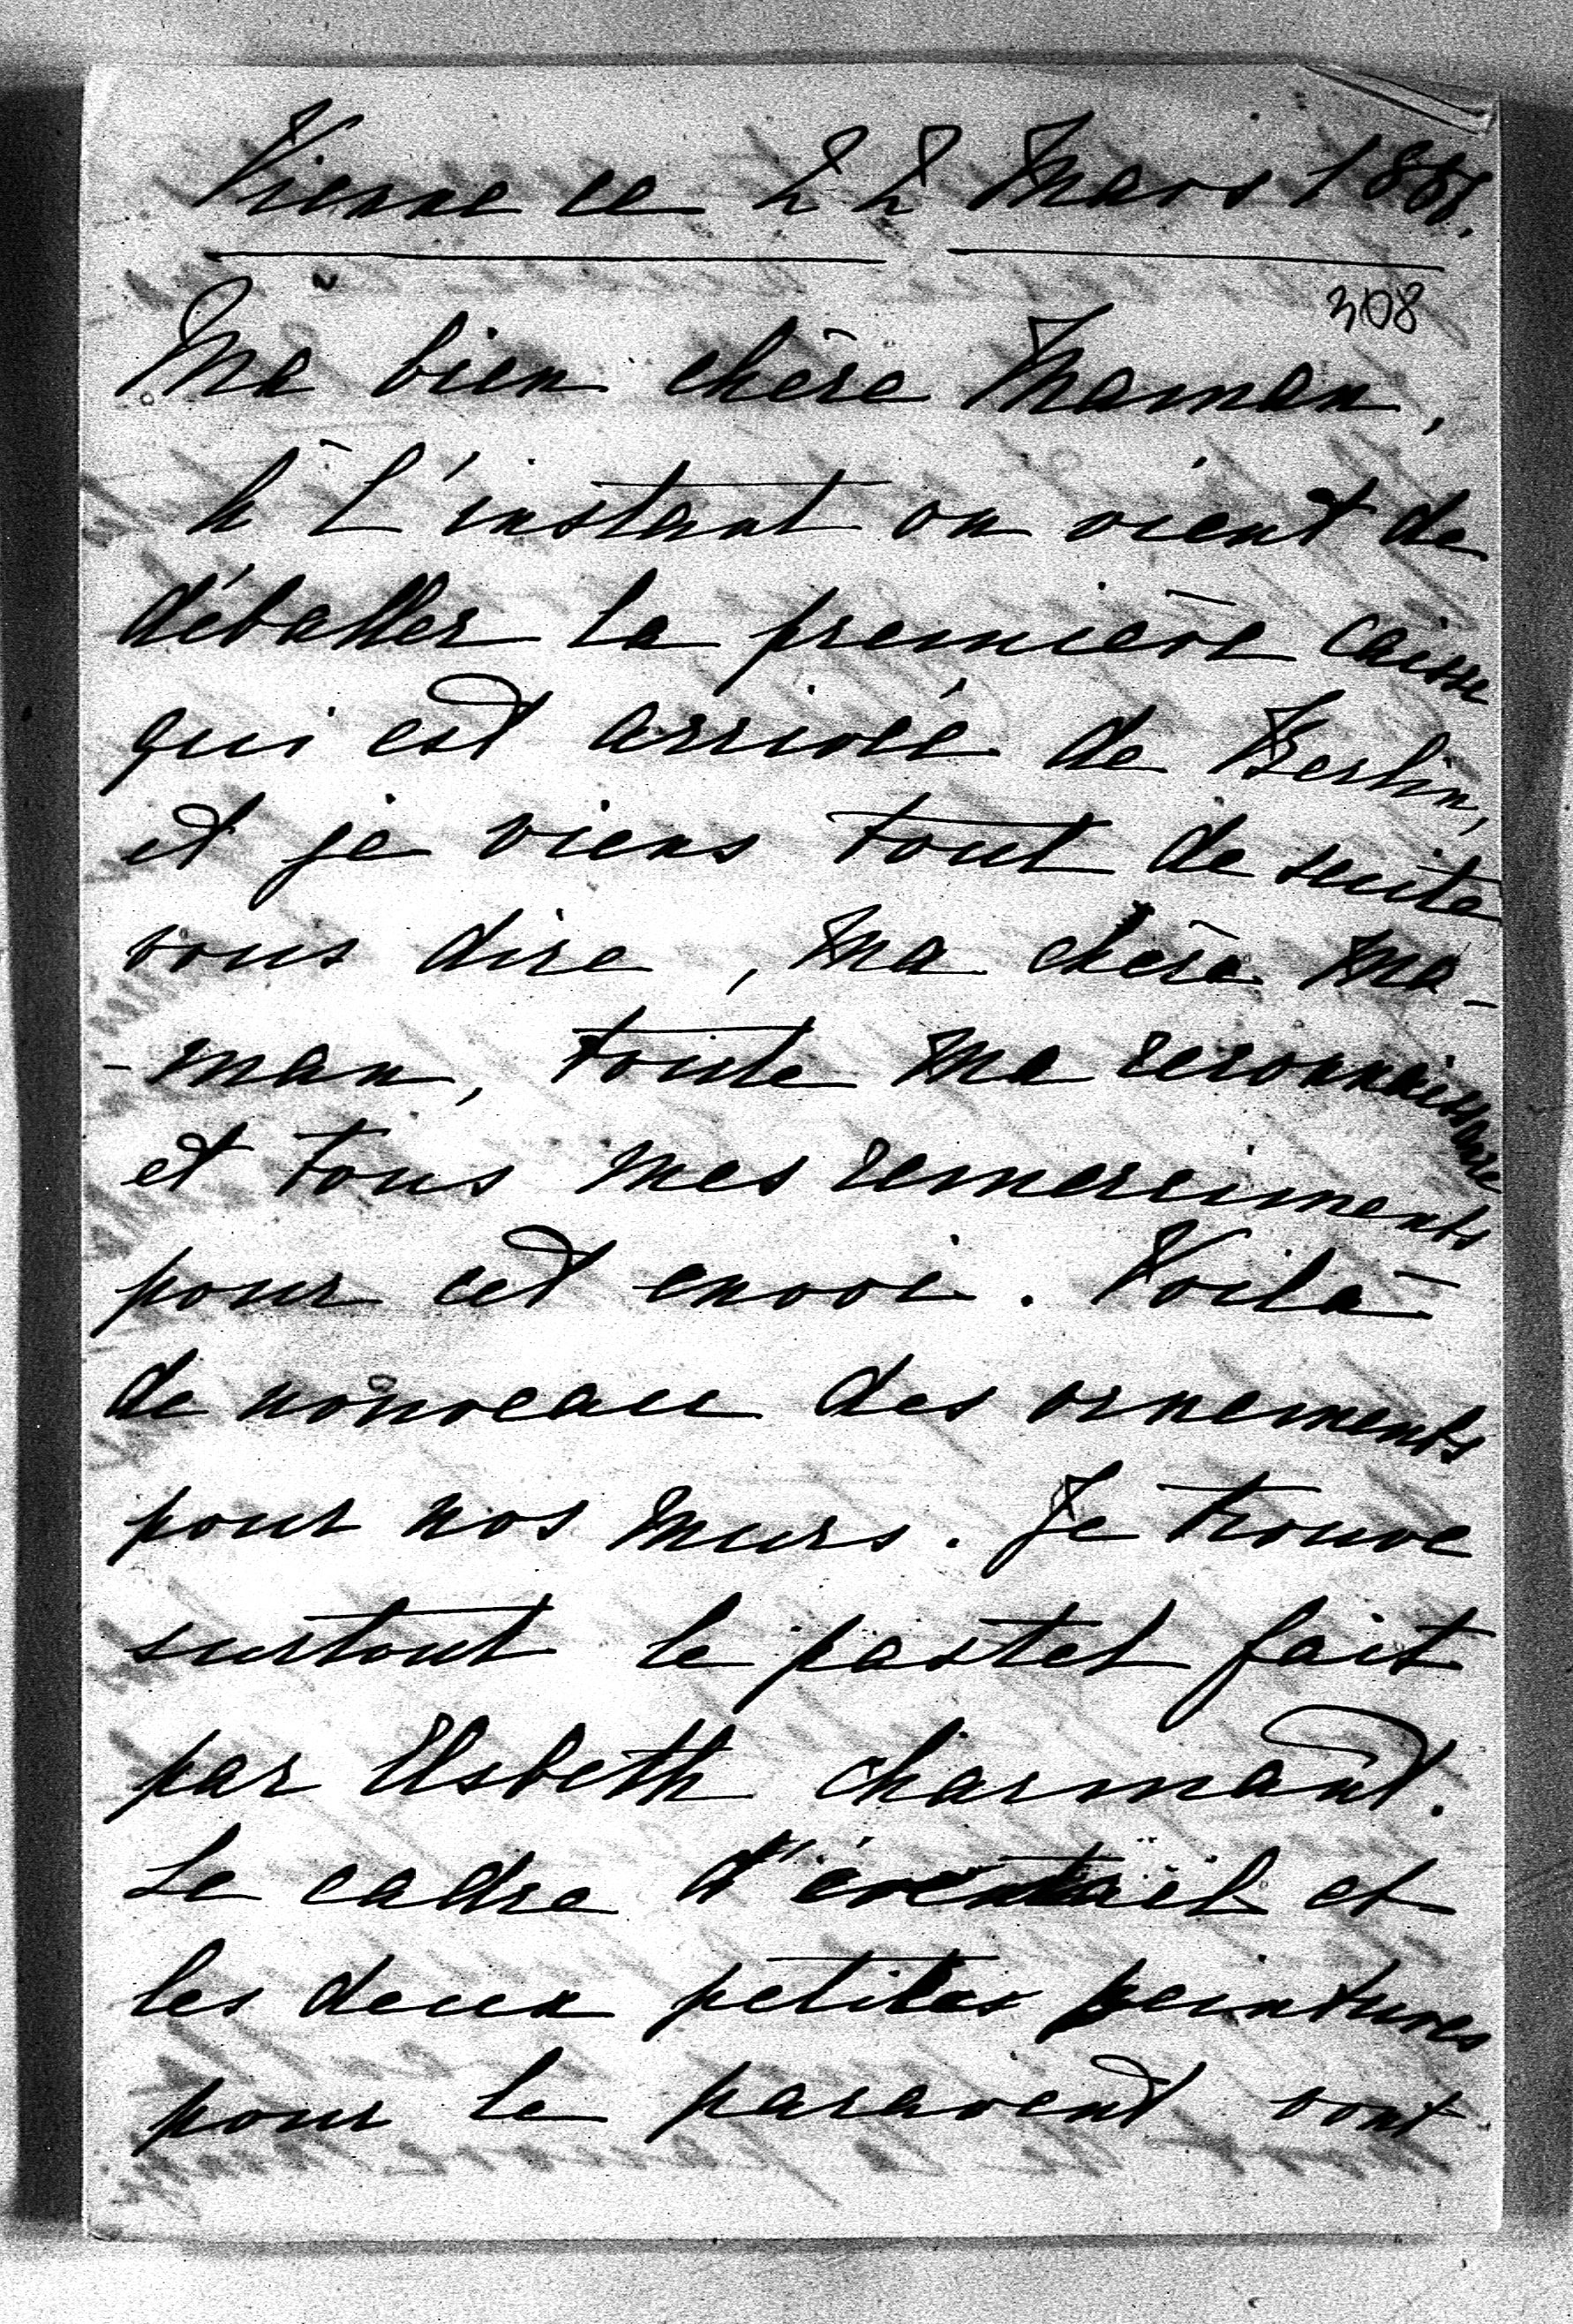 Vienne ce 22 Mars 1888.
308
Ma bien chère Maman,
à l'instant on vient de
déballer la première caisse
qui est arrivée de Berlin,
et je viens tout de suite
vous dire, ma chère ma-
-man, toute ma reconnaissance
et tous mes remerciments
pour cet envoi. Voilà
de nouveau des ornements
pour nos murs. Je trouve
surtout le pastel fait
par Elsbeth charmant.
Le cadre d'éventail et
les deux petites peintures
pour le paravent vont